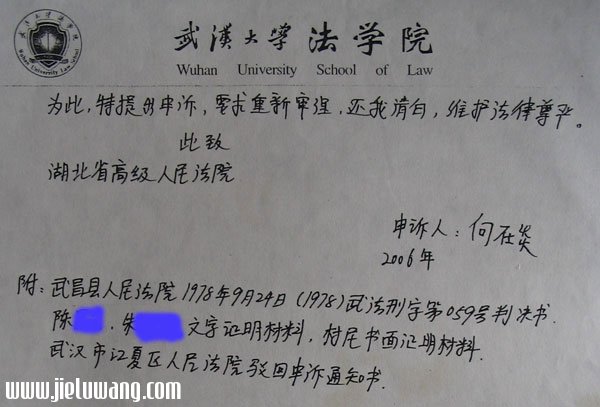 武漢大學 法学院
Wuhan University School of Law
为此,特提出申诉,要求重新审理,还我清白,维护法律尊严。
此致
湖北省高级人民法院
申诉人:何在炎
2006年
附:武昌县人民法院1978年9月24日(1978)武法刑字第059号判决书.
陈 . 朱 文字证明材料,村尾书面证明材料.
武汉市江夏区人民法院驳回申诉通知书.
www.jieluwang.com